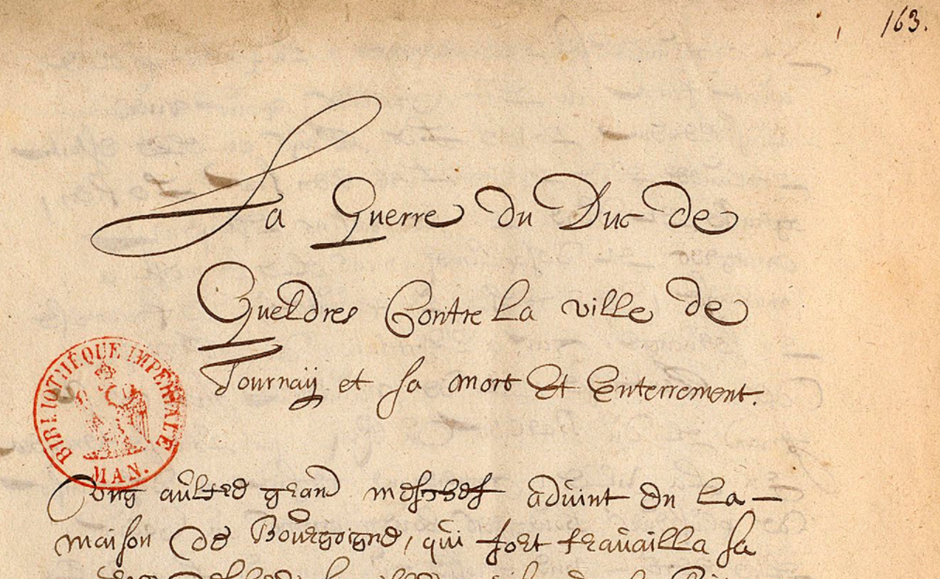 163.
La Guerre du Duc de
Gueldres Contre la ville de
Tournay et sa mort Et Enterrement.
BIBLIOTHÈQUE IMPÉRIALE
MAN.
Ung aultre grand meschef advint en la
maison de Bourgogne, qui fort travailla sa